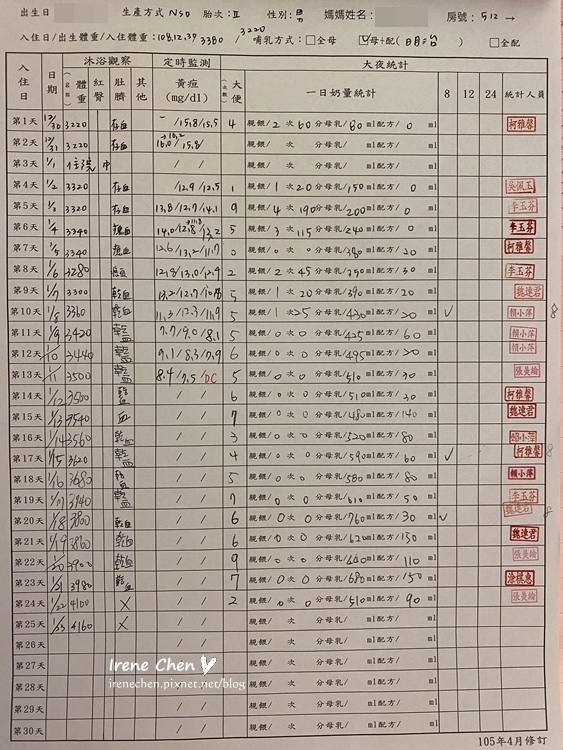 出生日 生產方式 NSD 胎次：II 性別：男 媽媽姓名： 房號：512 →
入住日/出生體重/入住體重：108.12.30 3380 / 3220 哺乳方式：□全母 ☑母+配( ) □全配
入住日 日期 沐浴觀察 定時監測 大便(次數) 大夜統計
體重(gm) 紅臀 肚臍 其他 黃疸(mg/dl) 一日奶量統計 8 12 24 統計人員
第1天 12/30 3220 存血 - /15.8/15.5 4 親餵/ 2 次 60 分母乳/ 80 ml配方/ 0 ml 柯雅馨
第2天 12/31 3220 存血 16.0/15.8 親餵/ 次 分母乳/ ml配方/ ml
第3天 1/1 住院中 / / 親餵/ 次 分母乳/ ml配方/ ml
第4天 1/2 3320 存血 /12.9/12.5 1 親餵/ 1 次 20 分母乳/ 150 ml配方/ 0 ml 吳佩玉
第5天 1/3 3320 存血 13.8/12.9/14.1 9 親餵/ 4 次 190 分母乳/ 200 ml配方/ 0 ml 李玉芬
第6天 1/4 3340 14.0/12.8/13.2 5 親餵/ 3 次 115 分母乳/ 240 ml配方/ 0 ml 李玉芬
第7天 1/5 3340 12.6/13.2/11.7 0 親餵/ 0 次 0 分母乳/ 380 ml配方/ 20 ml 柯雅馨
第8天 1/6 3280 12.8/13.0/12.4 2 親餵/ 2 次 45 分母乳/ 250 ml配方/ 30 ml 李玉芬
第9天 1/7 3300 乾血 13.2/12.7/ 5 親餵/ 1 次 20 分母乳/ 390 ml配方/ 20 ml 魏達君
第10天 1/8 3360 乾血 11.3/12.3/11.9 5 親餵/ 1 次 25 分母乳/ 430 ml配方/ 20 ml ✓ 賴小萍 8
第11天 1/9 3420 乾血 7.7/9.0/8.1 5 親餵/ 0 次 0 分母乳/ 425 ml配方/ 60 ml 賴小萍
第12天 1/10 3440 乾血 9.1/8.3/7.9 6 親餵/ 0 次 0 分母乳/ 495 ml配方/ 20 ml 賴小萍
第13天 1/11 3500 乾血 8.4/7.5/DC 5 親餵/ 0 次 0 分母乳/ 510 ml配方/ 30 ml 張美綸
第14天 1/12 3500 乾血 / / 6 親餵/ 0 次 0 分母乳/ 510 ml配方/ 30 ml 柯雅馨
第15天 1/13 3540 血 / / 7 親餵/ 0 次 0 分母乳/ 480 ml配方/ 140 ml 魏達君
第16天 1/14 3560 乾血 / / 3 親餵/ 0 次 0 分母乳/ 520 ml配方/ 80 ml 賴小萍
第17天 1/15 3620 乾血 / / 4 親餵/ 0 次 0 分母乳/ 590 ml配方/ 60 ml ✓ 柯雅馨 8
第18天 1/16 3680 乾血 / / 5 親餵/ 0 次 0 分母乳/ 580 ml配方/ 80 ml 賴小萍
第19天 1/17 3740 乾血 / / 7 親餵/ 0 次 0 分母乳/ 610 ml配方/ 50 ml 李玉芬
第20天 1/18 3800 乾血 / / 6 親餵/ 0 次 0 分母乳/ 760 ml配方/ 30 ml ✓ 魏達君 8
第21天 1/19 3860 乾血 / / 6 親餵/ 0 次 0 分母乳/ 620 ml配方/ 130 ml 魏達君
第22天 1/20 3900 乾血 / / 9 親餵/ 0 次 0 分母乳/ 640 ml配方/ 110 ml 張美綸
第23天 1/21 3980 乾血 / / 7 親餵/ 0 次 0 分母乳/ 680 ml配方/ 150 ml
第24天 1/22 4100 X / / 2 親餵/ 0 次 0 分母乳/ 510 ml配方/ 90 ml 張美綸
第25天 1/23 4160 X / / 親餵/ 次 分母乳/ ml配方/ ml
第26天 / / 親餵/ 次 分母乳/ ml配方/ ml
第27天 / / 親餵/ 次 分母乳/ ml配方/ ml
第28天 / / 親餵/ 次 分母乳/ ml配方/ ml
第29天 / / 親餵/ 次 分母乳/ ml配方/ ml
第30天 / / 親餵/ 次 分母乳/ ml配方/ ml
Irene Chen
irenechen.pixnet.net/blog
105年4月修訂